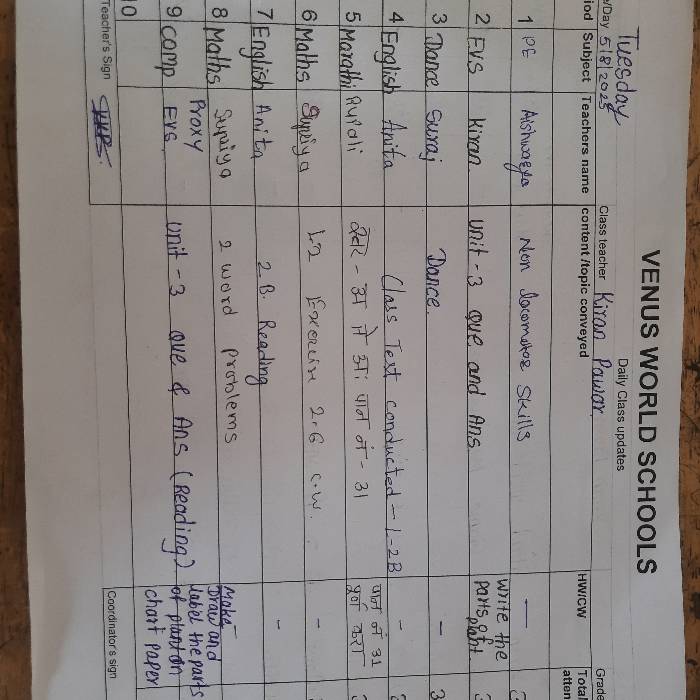 VENUS WORLD SCHOOLS
Daily Class updates
Tuesday
/Day 5/8/2025 Class teacher Kiran Pawar. Grade
iod Subject Teachers name content /topic conveyed HW/CW Total atten
1 PE Aishwarya Non locomotor Skills —
2 EVS Kiran unit - 3 Que and Ans write the parts of plant.
3 Dance Suraj Dance. - 3
4 English Anita Class Test conducted - L-2B -
5 Marathi Rupali स्वर - अ ते अः पान नं - 31 पान नं 31 पूर्ण करा
6 Maths Supriya L2 Exercise 2.6 C.W. -
7 English Anita 2B. Reading -
8 Maths Supriya 2 word problems
9 Comp Proxy EVS unit - 3 Que & Ans (Reading) Make Draw and label the parts of plant on chart paper
10
Teacher's Sign Coordinator's sign